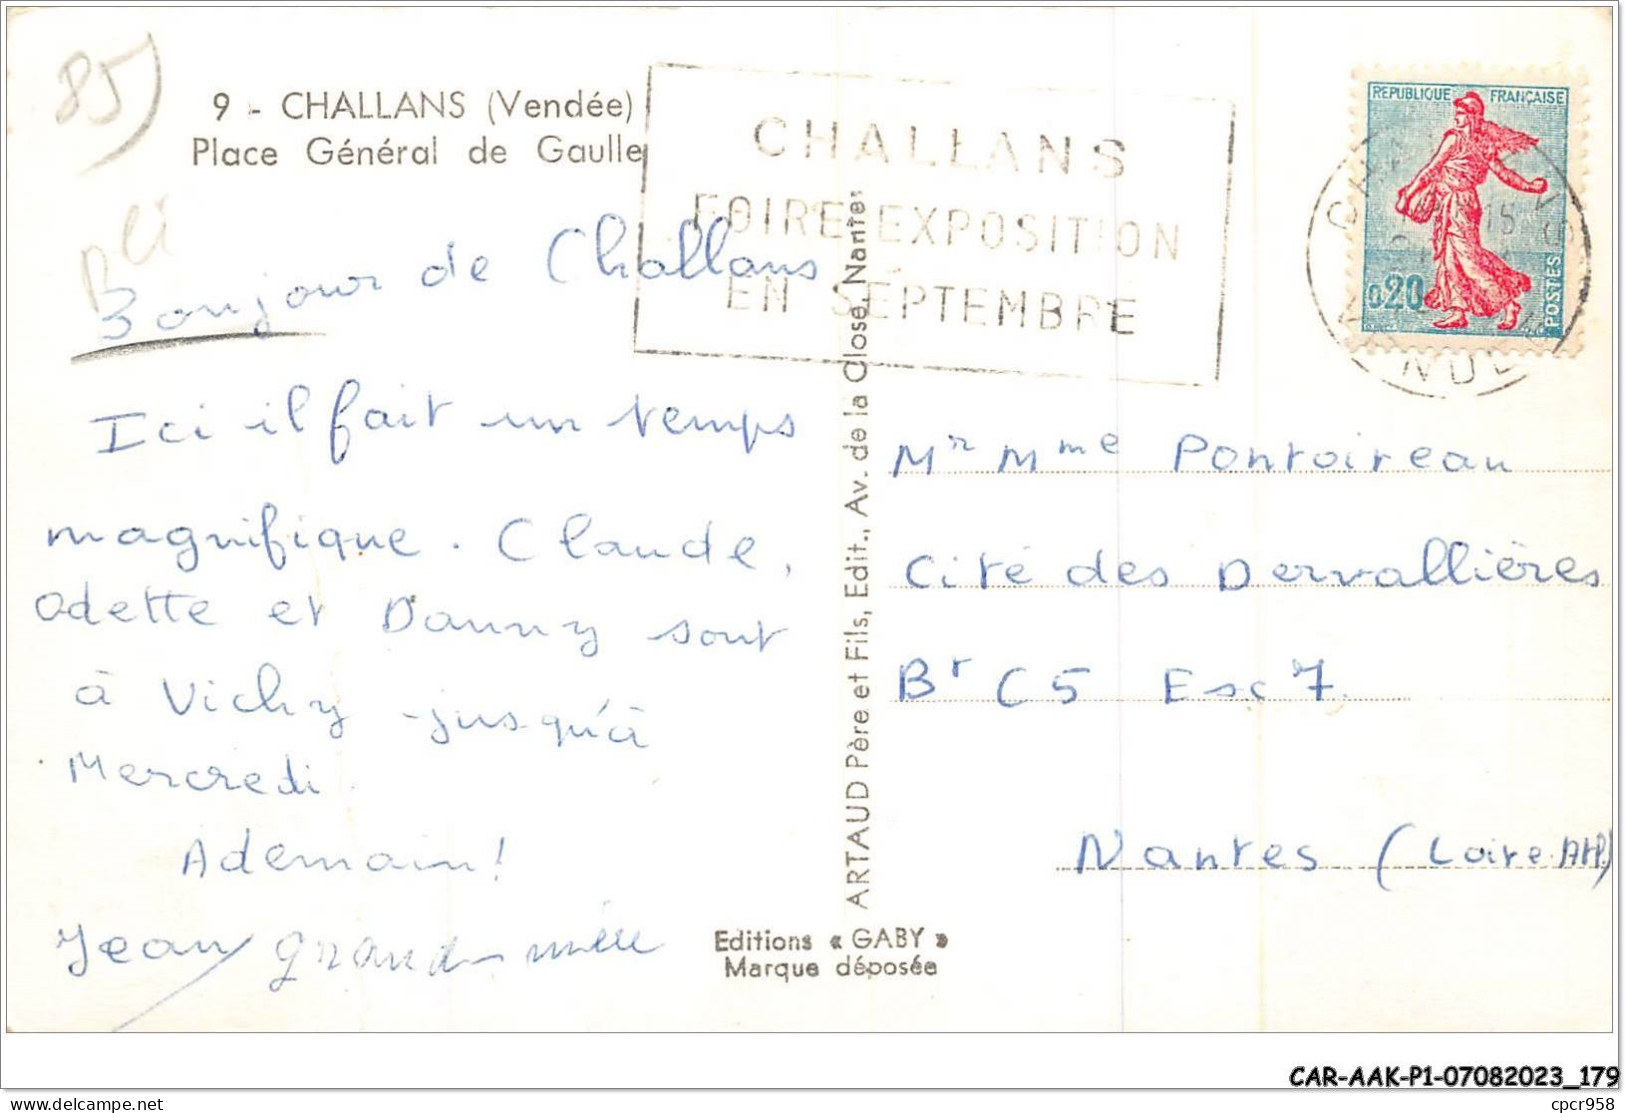 85
9 - CHALLANS (Vendée)
Place Général de Gaulle
CHALLANS
FOIRE EXPOSITION
EN SEPTEMBRE
REPUBLIQUE FRANÇAISE
0,20
POSTES
Bonjour de Challans
Ici il fait un temps
magnifique. Claude,
Odette et Danny sont
à Vichy jusqu'à
Mercredi
A demain!
Jean grand-mère
ARTAUD Père et Fils, Edit., Av. de la Close, Nantes
Mr Mme Pontoireau
Cité des Dervallières
Bt C5 Esc 7.
Nantes (Loire Atl.)
Editions « GABY »
Marque déposée
CAR-AAK-P1-07082023_179
delcampe.net
cpcr958